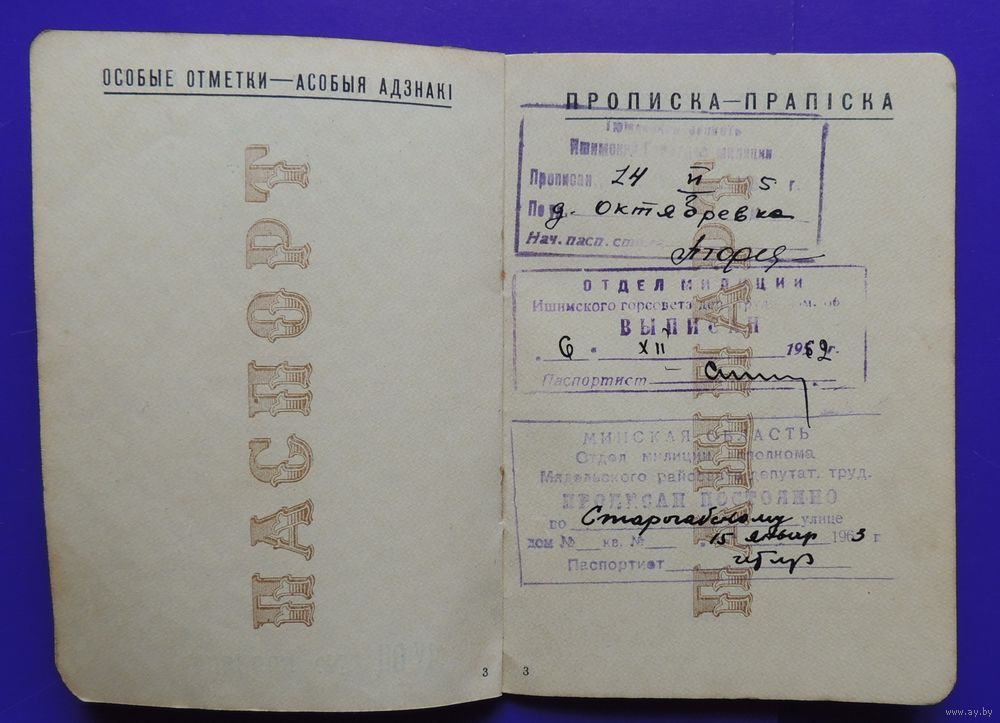 ОСОБЫЕ ОТМЕТКИ—АСОБЫЯ АДЗНАКІ
ПАСПОРТ
3
ПРОПИСКА—ПРАПІСКА
Прописан 14 II 5 г.
д. Октябревка
Нач. пасп.
ОТДЕЛ МИЛИЦИИ
Ишимского горсовета
ВЫПИСАН
6 XII 1962 г.
Паспортист
МИНСКАЯ ОБЛАСТЬ
Отдел милиции
Мядельского депутат. труд.
ПРОПИСАН ПОСТОЯННО
по улице
дом № кв. № 15 январ 1963 г
Паспортист
ПАШПАРТ
3
www.ay.by